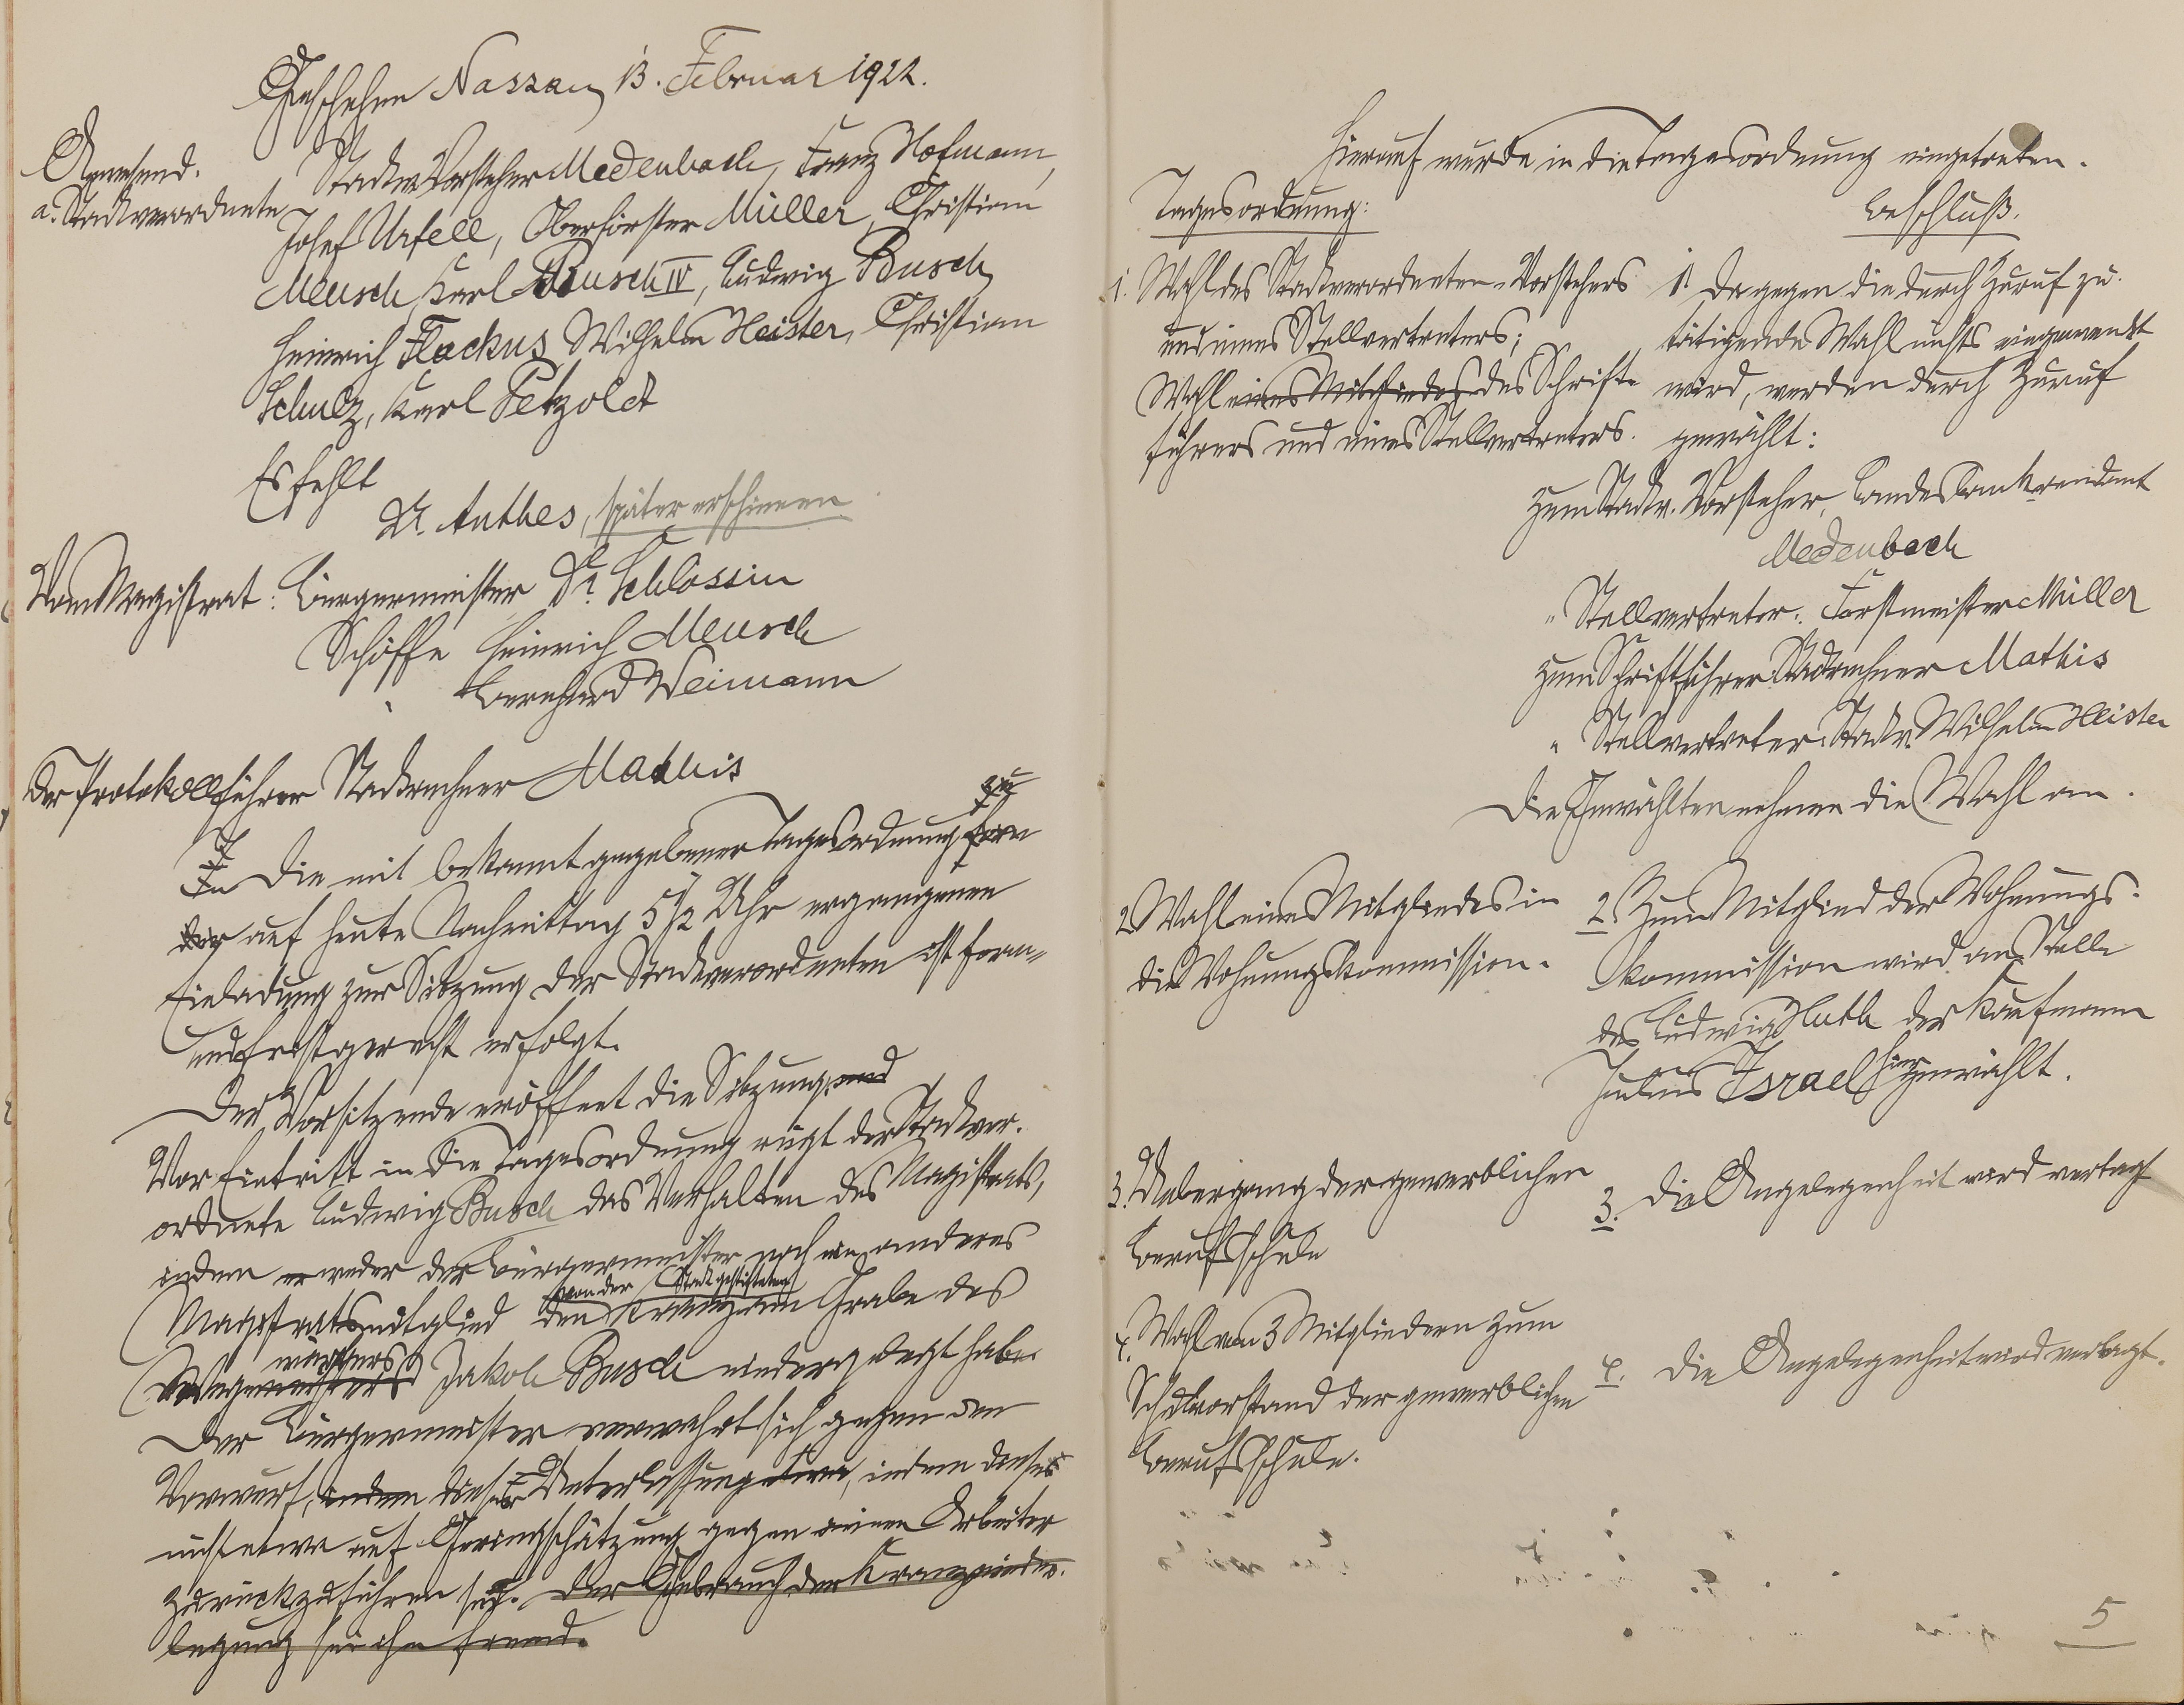 Geschehen Nassau, 13. Februar 1922.
Anwesend.
a. Stadtverordnete
Stadtv. Vorsteher Medenbach, Franz Hofmann,
Josef Urfell, Oberförster Müller, Christian
Meusch, Karl Busch IV, Ludwig Busch,
Heinrich Flackus, Wilhelm Heister, Christian
Schulz, Karl Petzoldt
Es fehlt
Dr. Anthes, später erschienen
Vom Magistrat: Bürgermeister Dr. Schlossin
Schöffe Heinrich Meusch
" Bernhard Weimann
Der Protokollführer Stadtrechner Mathis
zu
Die mit bekannt gegebener Tagesordnung
der auf heute Nachmittag 5 1/2 Uhr ergangenen
Einladung zur Sitzung der Stadtverordneten ist form-
und fristgerecht erfolgt.
Der Vorsitzende eröffnet die Sitzung und
Vor Eintritt in die Tagesordnung rügt der Stadtver-
ordnete Ludwig Busch das Verhalten des Magistrats,
indem er weder der Bürgermeister noch ein anderes
von der Stadt gestifteten
Magistratsmitglied den Kranz am Grabe des
wärters
Wegemeisters Jakob Busch niedergelegt habe.
Der Bürgermeister verwahrt sich gegen den
Vorwurf, indem dieser Unterlassung etwa, indem dieses
nicht etwa auf Geringschätzung gegen einen Arbeiter
zurückzuführen sei. Der Gebrauch der Kranznieder-
legung sei ihm fremd.
Hierauf wurde in die Tagesordnung eingetreten.
Tagesordnung:
Beschluß.
1. Wahl des Stadtverordneten-Vorstehers
und eines Stellvertreters;
Wahl eines Mitgliedes des Schrift-
führers und eines Stellvertreters.
1. Da gegen die durch Zuruf zu
tätigende Wahl nichts eingewendt
wird, werden durch Zuruf
gewählt:
zum Stadtv. Vorsteher, Landesbankrendant
Medenbach
" Stellvertreter: Forstmeister Müller
zum Schriftführer Stadtrechner Mathis
" Stellvertreter Stadtv. Wilhelm Heister
Die Gewählten nehmen die Wahl an.
2. Wahl eines Mitgliedes in
die Wohnungskommission.
2. Zum Mitglied der Wohnungs-
kommission wird an Stelle
des Ludwig Huth der Kaufmann
Julius Israel hier gewählt.
3. Uebergang der gewerblichen
Berufsschule
3. Die Angelegenheit wird vertagt
4. Wahl von 3 Mitgliedern zum
Schulvorstand der gewerblichen
Berufsschule.
4. Die Angelegenheit wird vertagt.
5